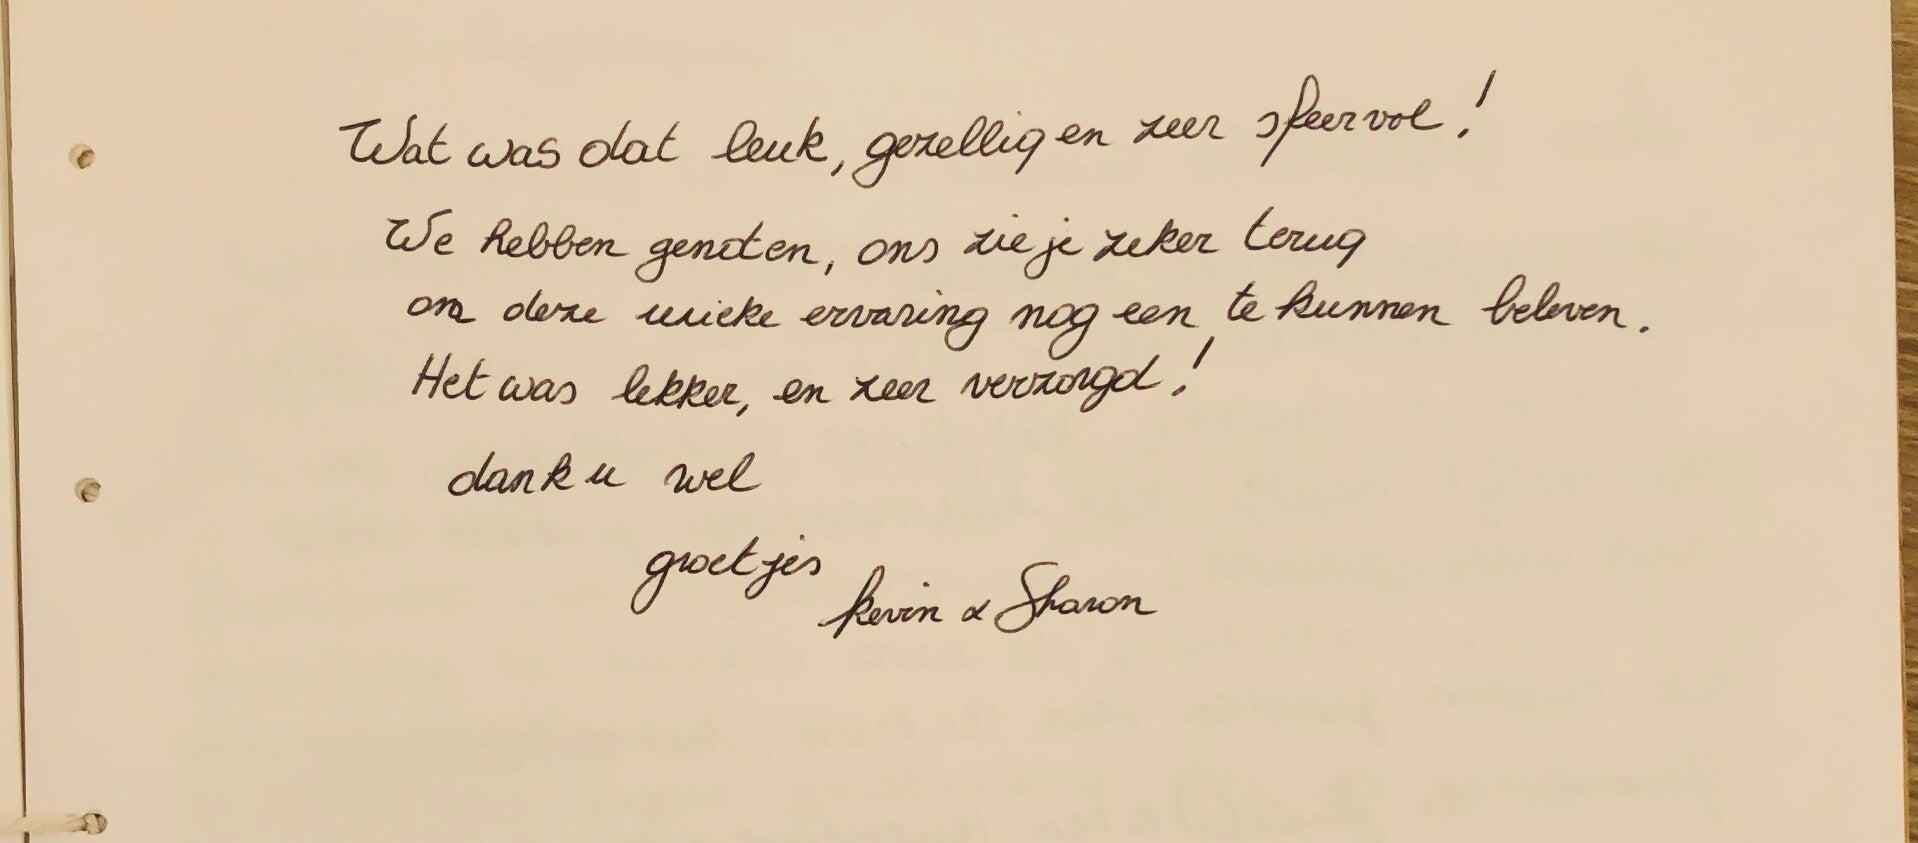 Wat was dat leuk, gezellig en zeer sfeervol!
We hebben genoten, ons zie je zeker terug
om deze unieke ervaring nog een te kunnen beleven.
Het was lekker, en zeer verzorgd!
dank u wel
groetjes
Kevin & Sharon